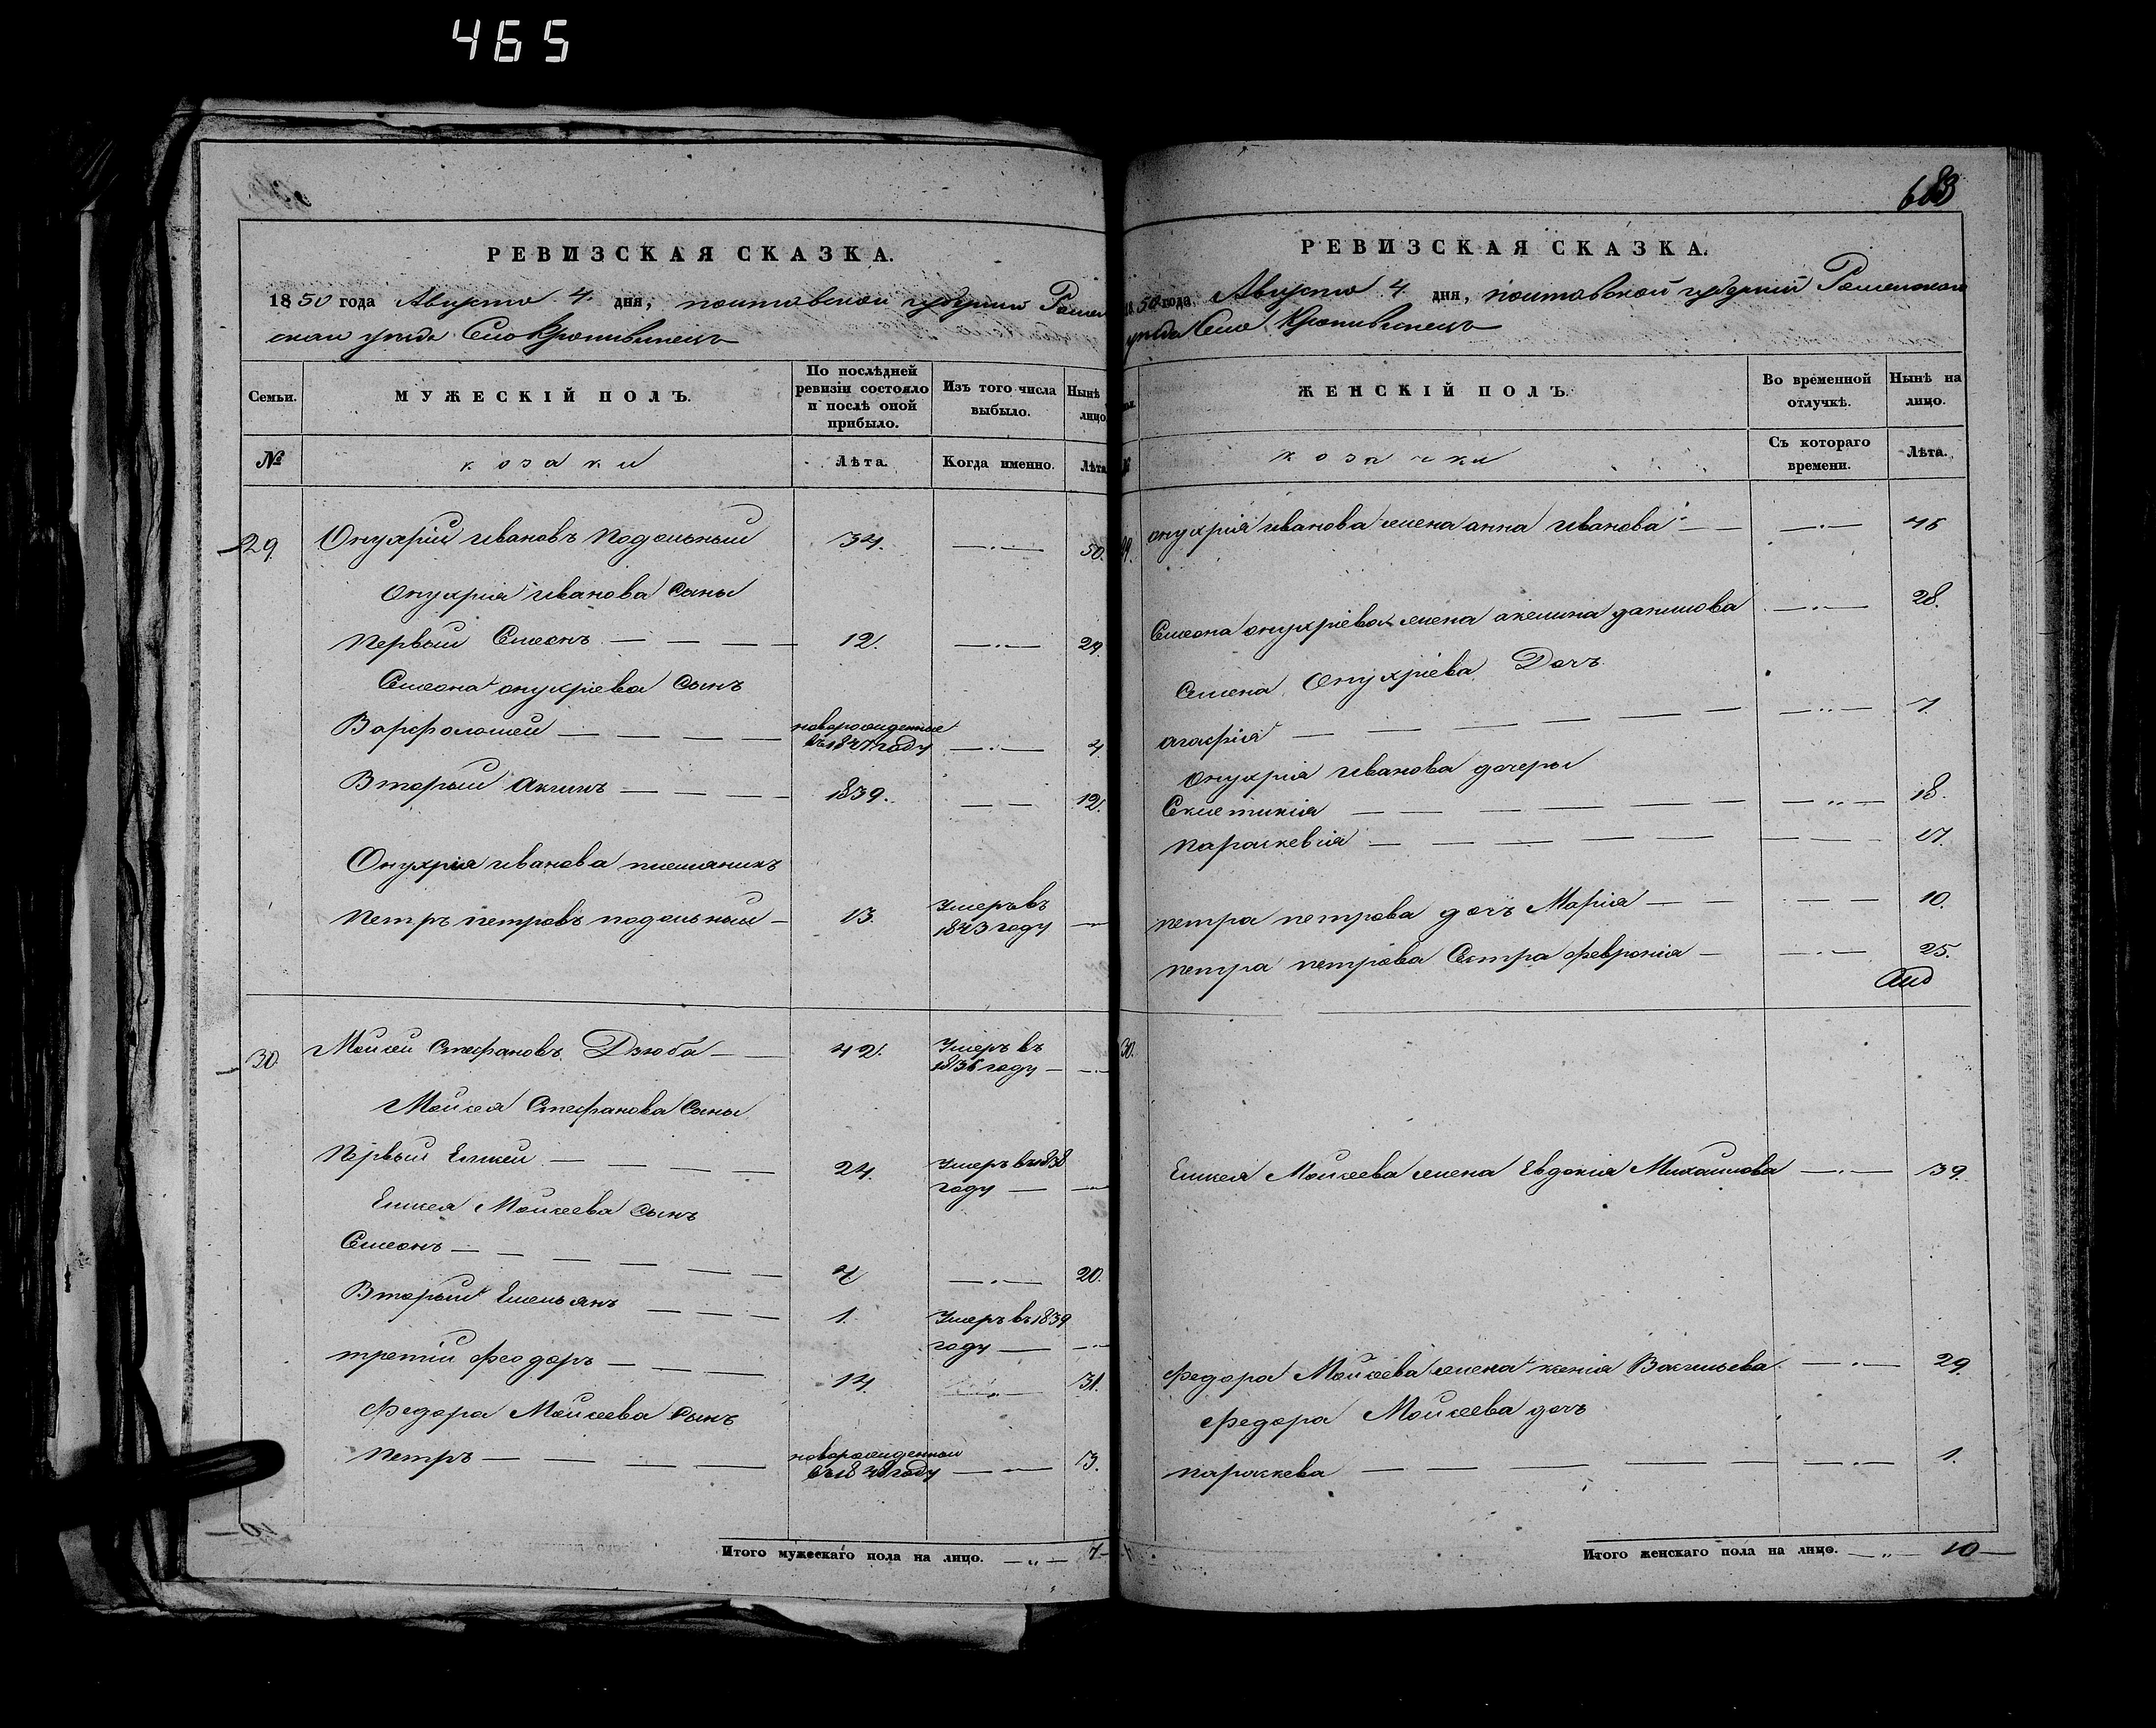 465
683
РЕВИЗСКАЯ СКАЗКА.
1850 года Августа 4. дня, полтавской губернии Ромен
скаго уезда Село Кропивинецъ
Семьи.
МУЖЕСКІЙ ПОЛЪ.
По послѣдней ревизіи состояло и послѣ оной прибыло.
Изъ того числа выбыло.
Нынѣ лицо
№
козаки
Лѣта.
Когда именно.
Лѣта
29. Онуфрій ивановъ Подольный 34. 50.
Онуфрія иванова Сыны
Первый Семенъ 12. 29.
Семена онуфріева Сынъ
Варфоломей новорожденные въ 1847 году 4
Вторый Акимъ 1839. 12.
Онуфрія иванова племянникъ
Петръ петровъ подольный 13. Умеръ въ 1843 году
30. Моисей Стефановъ Дзюба 42. Умеръ въ 1836 году
Моисея Стефанова Сыны
Первый Елисей 24. Умеръ въ 1838 году
Елисея Моисеева Сынъ
Семенъ 4 20.
Вторый Емельянъ 1. Умеръ въ 1839 году
третій Феодоръ 14. 31.
Федора Моисеева Сынъ
Петръ новорожденный въ 1848 году 3.
Итого мужескаго пола на лицо. 7
РЕВИЗСКАЯ СКАЗКА.
1850 года, Августа 4 дня, полтавской губерніи Роменскаго
уезда Село Кропивинецъ
ЖЕНСКІЙ ПОЛЪ.
Во временной отлучкѣ.
Нынѣ на лицо.
козачки
Съ котораго времени.
Лѣта.
29. онуфрія иванова жена анна иванова 46
Семена онуфріева жена акелина данилова 28.
Семена Онуфріева Дочъ
агафія 7.
Онуфрія иванова дочеры
Склетикія 18.
параскевія 17.
петра петрова дочъ Марія 10.
петра петрова Сестра феврония 25.
30.
Елисея Моисеева жена Евдокія Михаилова 39.
Федора Моисеева жена ксенія Васильева 29.
Федора Моисеева дочъ
параскева 1.
Итого женскаго пола на лицо. 10